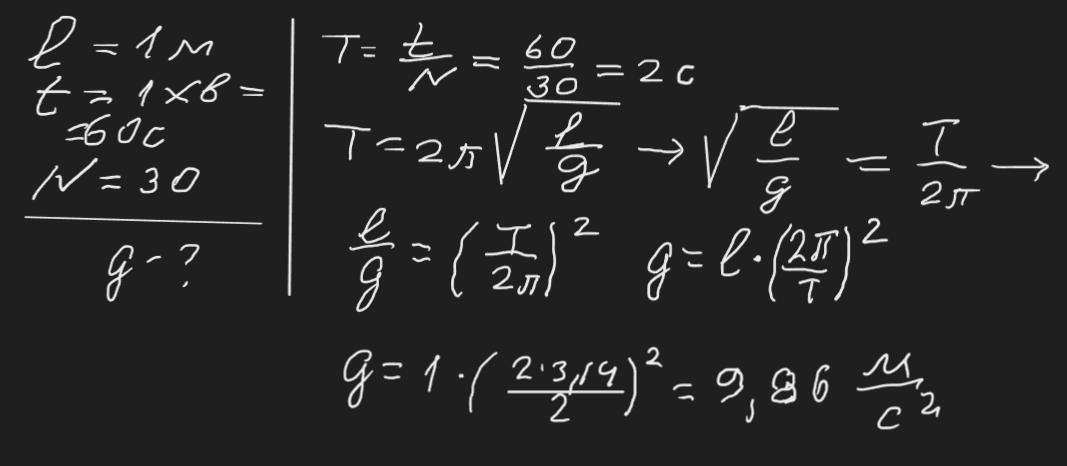 l = 1 м
t = 1 хв =
= 60 с
N = 30
g - ?
T = t/N = 60/30 = 2 с
T = 2π√(l/g) → √(l/g) = T/2π →
l/g = (T/2π)² g = l · (2π/T)²
g = 1 · (2·3,14/2)² = 9,86 м/с²